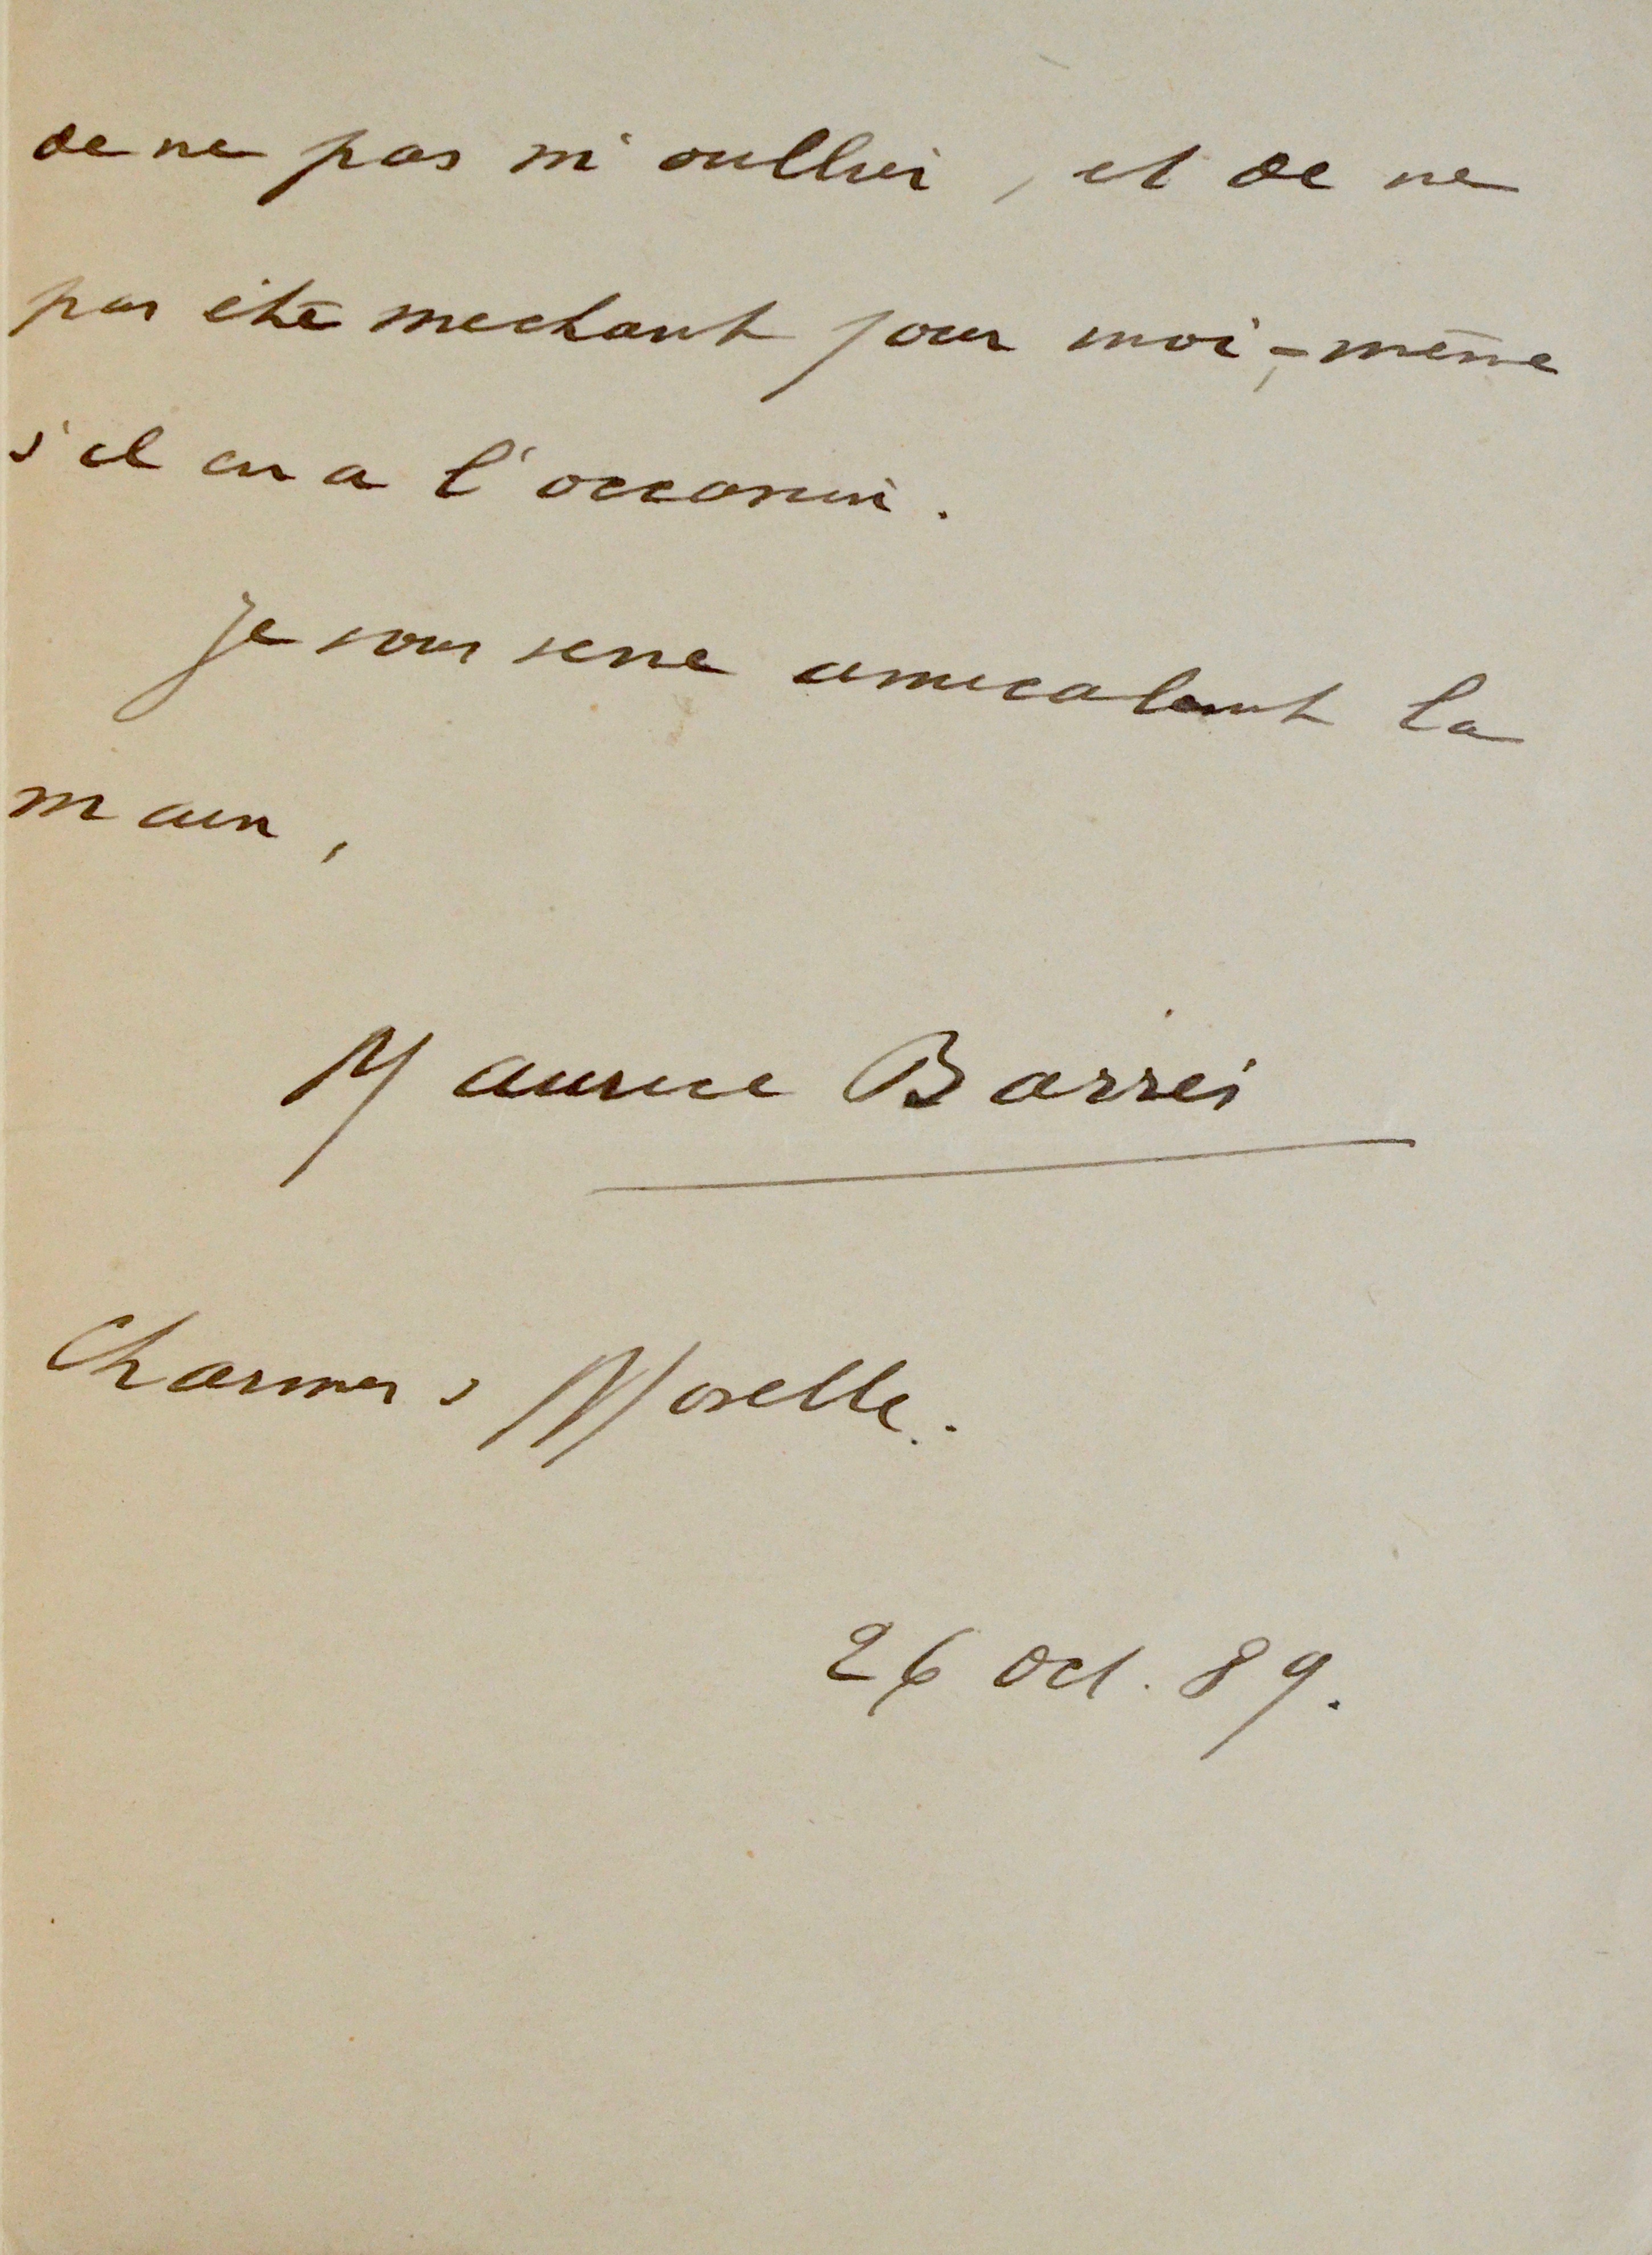 de ne pas m'oublier, et de ne
pas être méchant pour moi-même
s'il en a l'occasion.
Je vous serre amicalement la
main,
Maurice Barrès
Charmes s Moselle.
26 oct. 89.